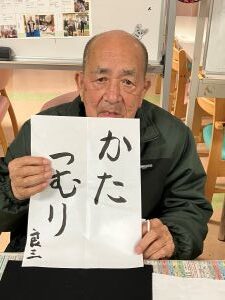 かた
つむり
良三